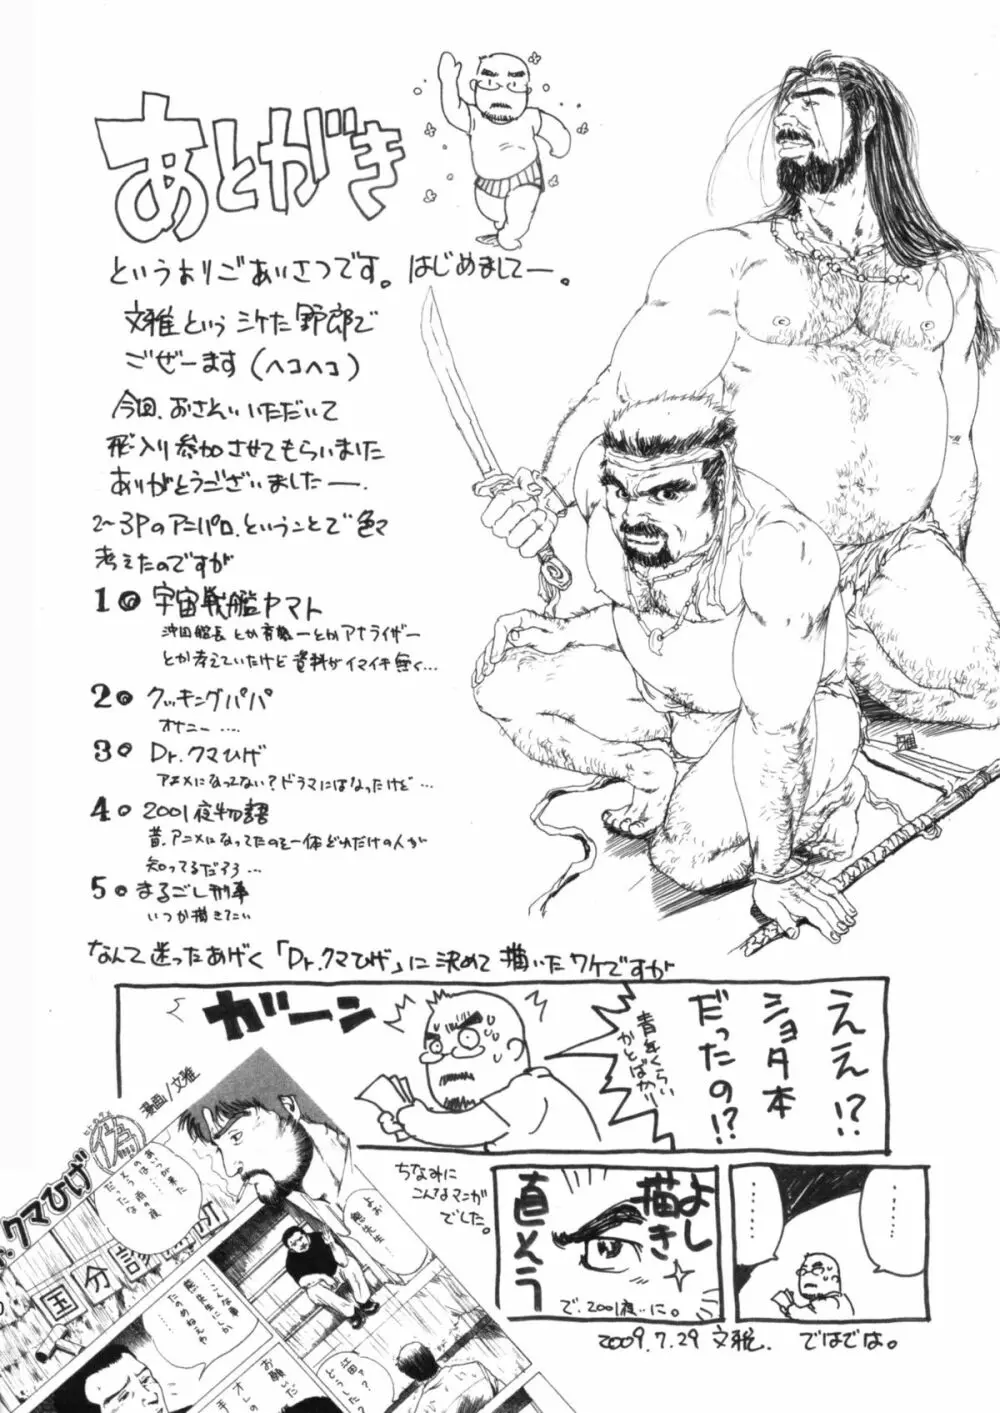 あとがき
というよりごあいさつです。はじめましてー。
文雅というシケた野郎で
ござーます(ヘコヘコ)
今回、おさそいいただいて
飛入り参加させてもらいました
ありがとうございましたー。
2〜3Pのアニパロ、ということで色々
考えたのですが
1. 宇宙戦艦ヤマト
沖田艦長とか真田さんとかアナライザー
とか考えていたけど資料がイマイチ無く…
2. クッキングパパ
オナニー….
3. Dr.クマひげ
アニメになってない?ドラマにはなったけど…
4. 2001夜物語
昔、アニメになってたのを一体どれだけの人が
知ってるだろう…
5. まるごし刑事
いつか描きたい
なんて迷ったあげく「Dr.クマひげ」に決めて描いたワケですが
ええ!?
ショタ本
だったの!?
青年くらい
かとばかり
ガーン
ちなみに
こんなマンガ
でした。
よし
描き
直そう
で、2001夜に。
………
………
2009.7.29 文雅. ではでは。
漫画/文雅
偽
Dr.クマひげ
国分診